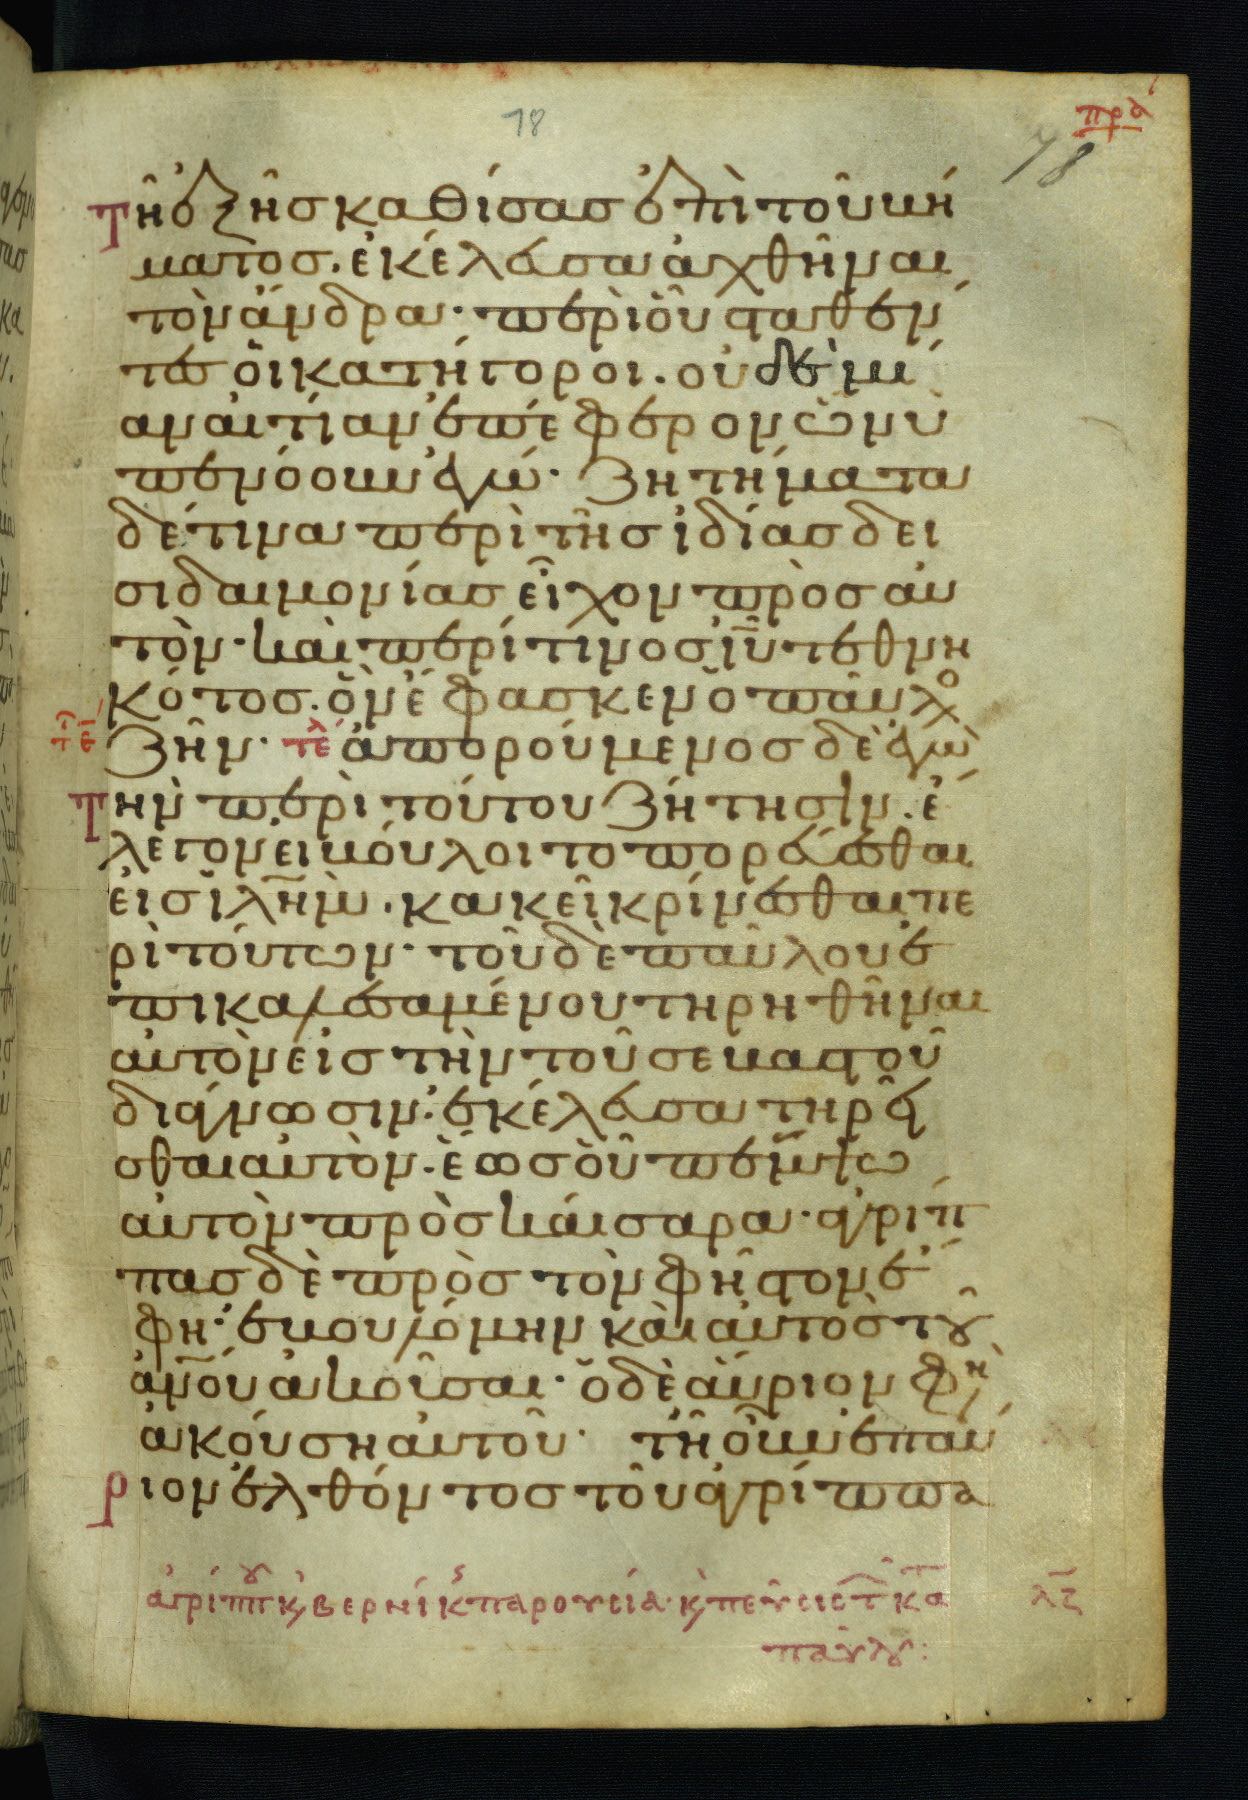 πρα
78
78
τῆ ἑξῆς καθίσας ἐπὶ τοῦ βή
ματος. ἐκέλευσα ἀχθῆναι
τὸν ἄνδρα· περὶ οὗ σταθέν
τες οἱ κατήγοροι. οὐδεμί
αν αἰτίαν ἐπέφερον ὧν ὑ
πενόουν ἐγώ· ζητήματα
δέ τινα περὶ τῆς ἰδίας δει
σιδαιμονίας εἶχον πρὸς αὐ
τὸν· καὶ περί τινος ἰυ τεθνη
κότος. ὃν ἔφασκεν ὁ παῦλο
ζῆν· τελ ἀπορούμενος δὲ ἐγὼ
τὴν περὶ τούτου ζήτησιν. ἔ
λεγον εἰ βούλοιτο πορεύεσθαι
εἰς ἰλημ. κακεῖ κρίνεσθαι πε
ρὶ τούτων· τοῦ δὲ παύλου ἐ
πικαλεσαμένου τηρηθῆναι
αὐτὸν εἰς τὴν τοῦ σεβαστοῦ
διάγνωσιν· ἐκέλευσα τηρεῖ
σθαι αὐτὸν. ἕως οὗ πέμψω
αὐτὸν πρὸς καίσαρα· ἀγρίπ
πας δὲ πρὸς τὸν φῆστον ἔ
φη· ἐβουλόμην καὶ αὐτὸς τοῦ
ανου ἀκοῦσαι· ὁ δὲ αὔριον φη
ἀκούση αὐτοῦ· τῆ οὖν ἐπαύ
ριον ἐλθόντος τοῦ ἀγρίππα
ἀγρίππου κ βερνίκς παρουσία· κ πεῦσις τ κα
παύλου:
λζ